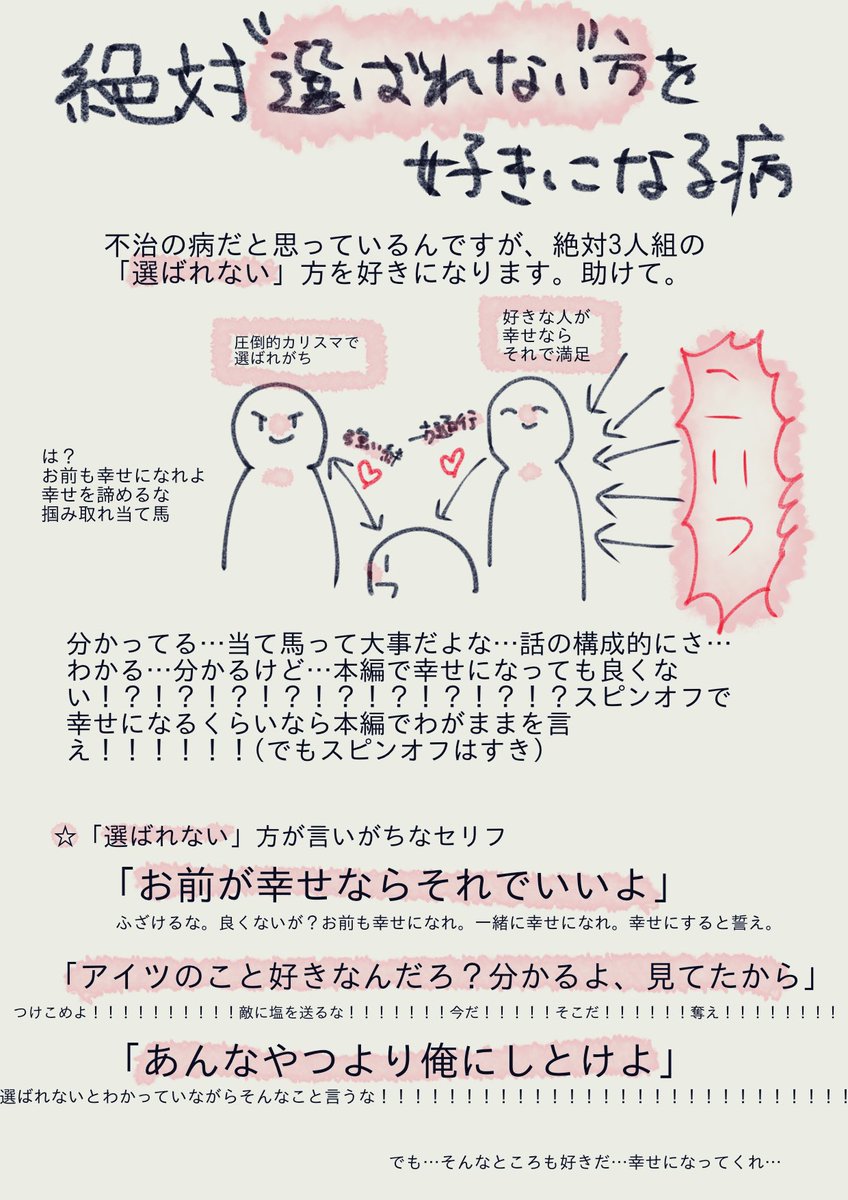 絶対“選ばれない”方を
好きになる病
不治の病だと思っているんですが、絶対3人組の
「選ばれない」方を好きになります。助けて。
圧倒的カリスマで
選ばれがち
好きな人が
幸せなら
それで満足
強い絆
一方通行
コ
コ
!!
つ
は？
お前も幸せになれよ
幸せを諦めるな
掴み取れ当て馬
分かってる…当て馬って大事だよな…話の構成的にさ…
わかる…分かるけど…本編で幸せになっても良くな
い！？！？！？！？！？！？！？！？！？スピンオフで
幸せになるくらいなら本編でわがままを言
え！！！！！！(でもスピンオフはすき)
☆「選ばれない」方が言いがちなセリフ
「お前が幸せならそれでいいよ」
ふざけるな。良くないが？お前も幸せになれ。一緒に幸せになれ。幸せにすると誓え。
「アイツのこと好きなんだろ？分かるよ、見てたから」
つけこめよ！！！！！！！！！！敵に塩を送るな！！！！！！！今だ！！！！！そこだ！！！！！！奪え！！！！！！！！
「あんなやつより俺にしとけよ」
選ばれないとわかっていながらそんなこと言うな！！！！！！！！！！！！！！！！！！！！！！！！！！！！
でも…そんなところも好きだ…幸せになってくれ…